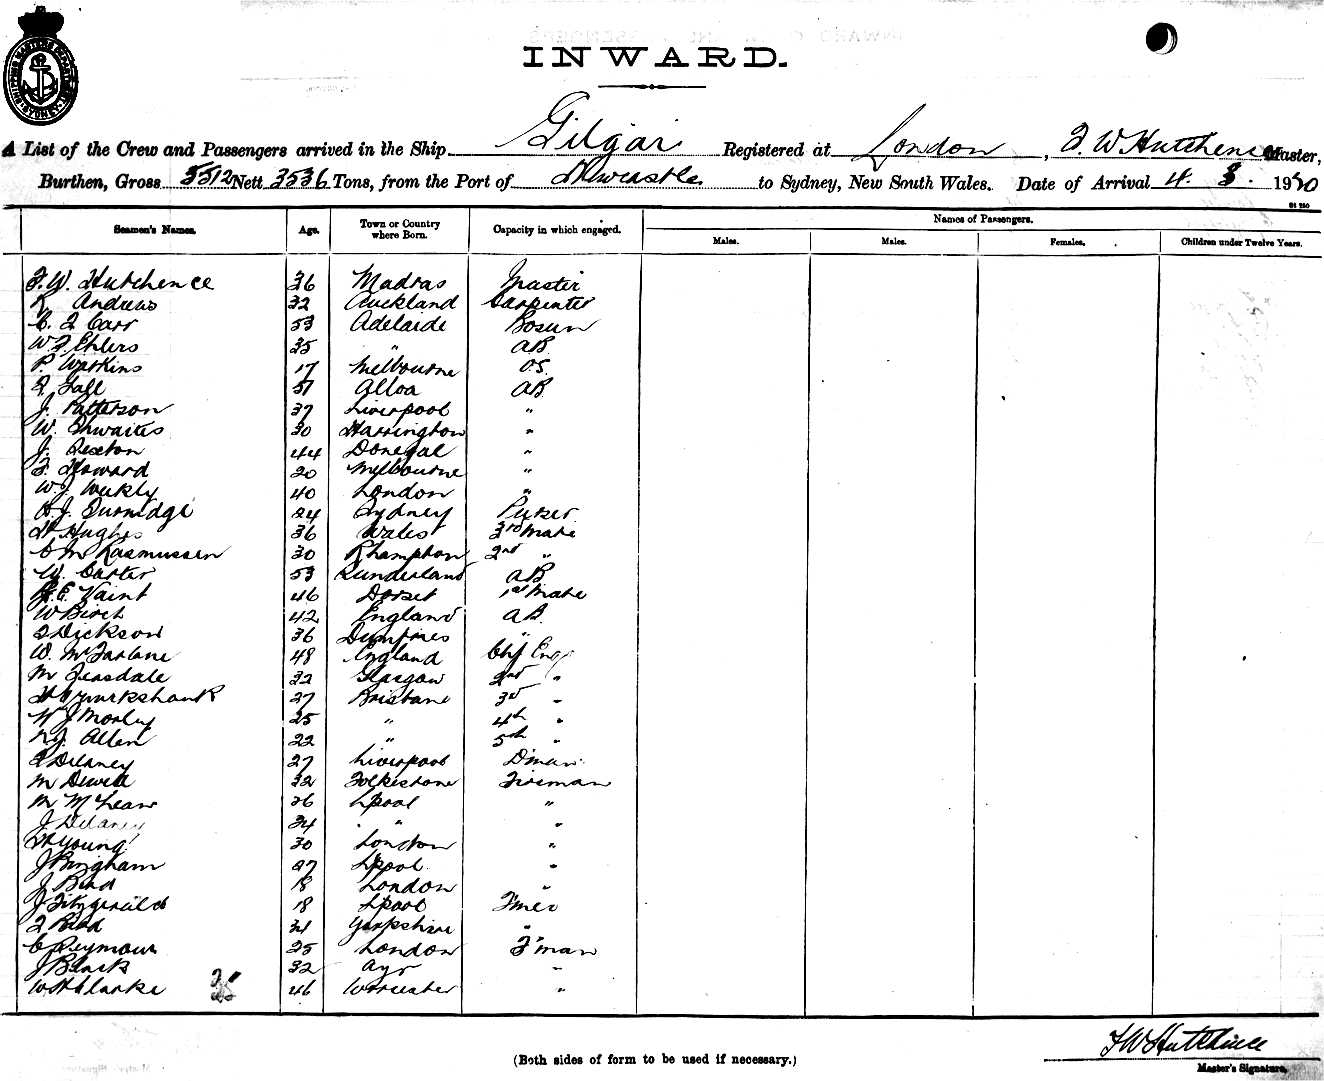 INWARD.
A List of the Crew and Passengers arrived in the Ship Gilgai Registered at London, F. W. Hutchence Master,
Burthen, Gross 5512 Nett 3536 Tons, from the Port of Newcastle to Sydney, New South Wales. Date of Arrival 4. 3. 1920
Names of Passengers.
Seamen's Names. Age. Town or Country where Born. Capacity in which engaged. Males. Males. Females. Children under Twelve Years.
F. W. Hutchence 36 Madras Master
R Andrews 32 Auckland Carpenter
C. F Carr 53 Adelaide Bosun
W F Ehlers 35 " AB
P. Watkins 17 Melbourne OS.
Gall 51 Alloa AB
J. Patterson 37 Liverpool "
W. Thwaites 30 Harrington "
J. Sexton 44 Donegal "
F. Howard 20 Melbourne "
W. J. Weekly 40 London "
H. J. 24 Sydney Purser
H Hughes 36 Wales 3rd Mate
C M Rasmussen 30 Rhampton 2nd "
W. Carter 53 Sunderland AB
E. Vaint 46 Dorset 1st Mate
W Birch 42 England AB.
Dickson 36 Dumfries "
W. McFarlane 48 England Chf Eng
M Teasdale 32 Glasgow 2nd "
H Cruikshank 27 Brisbane 3rd "
W J Morley 25 " 4th "
N. J. Allen 22 " 5th "
Delaney 27 Liverpool D'man
M Dewell 32 Folkestone Fireman
M McLean 36 Lpool "
J Delaney 34 " "
H Young 30 London "
J Bingham 27 Lpool "
J Bird 18 London "
J Fitzgerald 18 Lpool T'mer
F Reid 31 Yorkshire "
C Seymour 25 London F'man
J Black 32 Ayr "
W H Clarke 46 Worcester "
35
(Both sides of form to be used if necessary.)
F W Hutchence
Master's Signature.